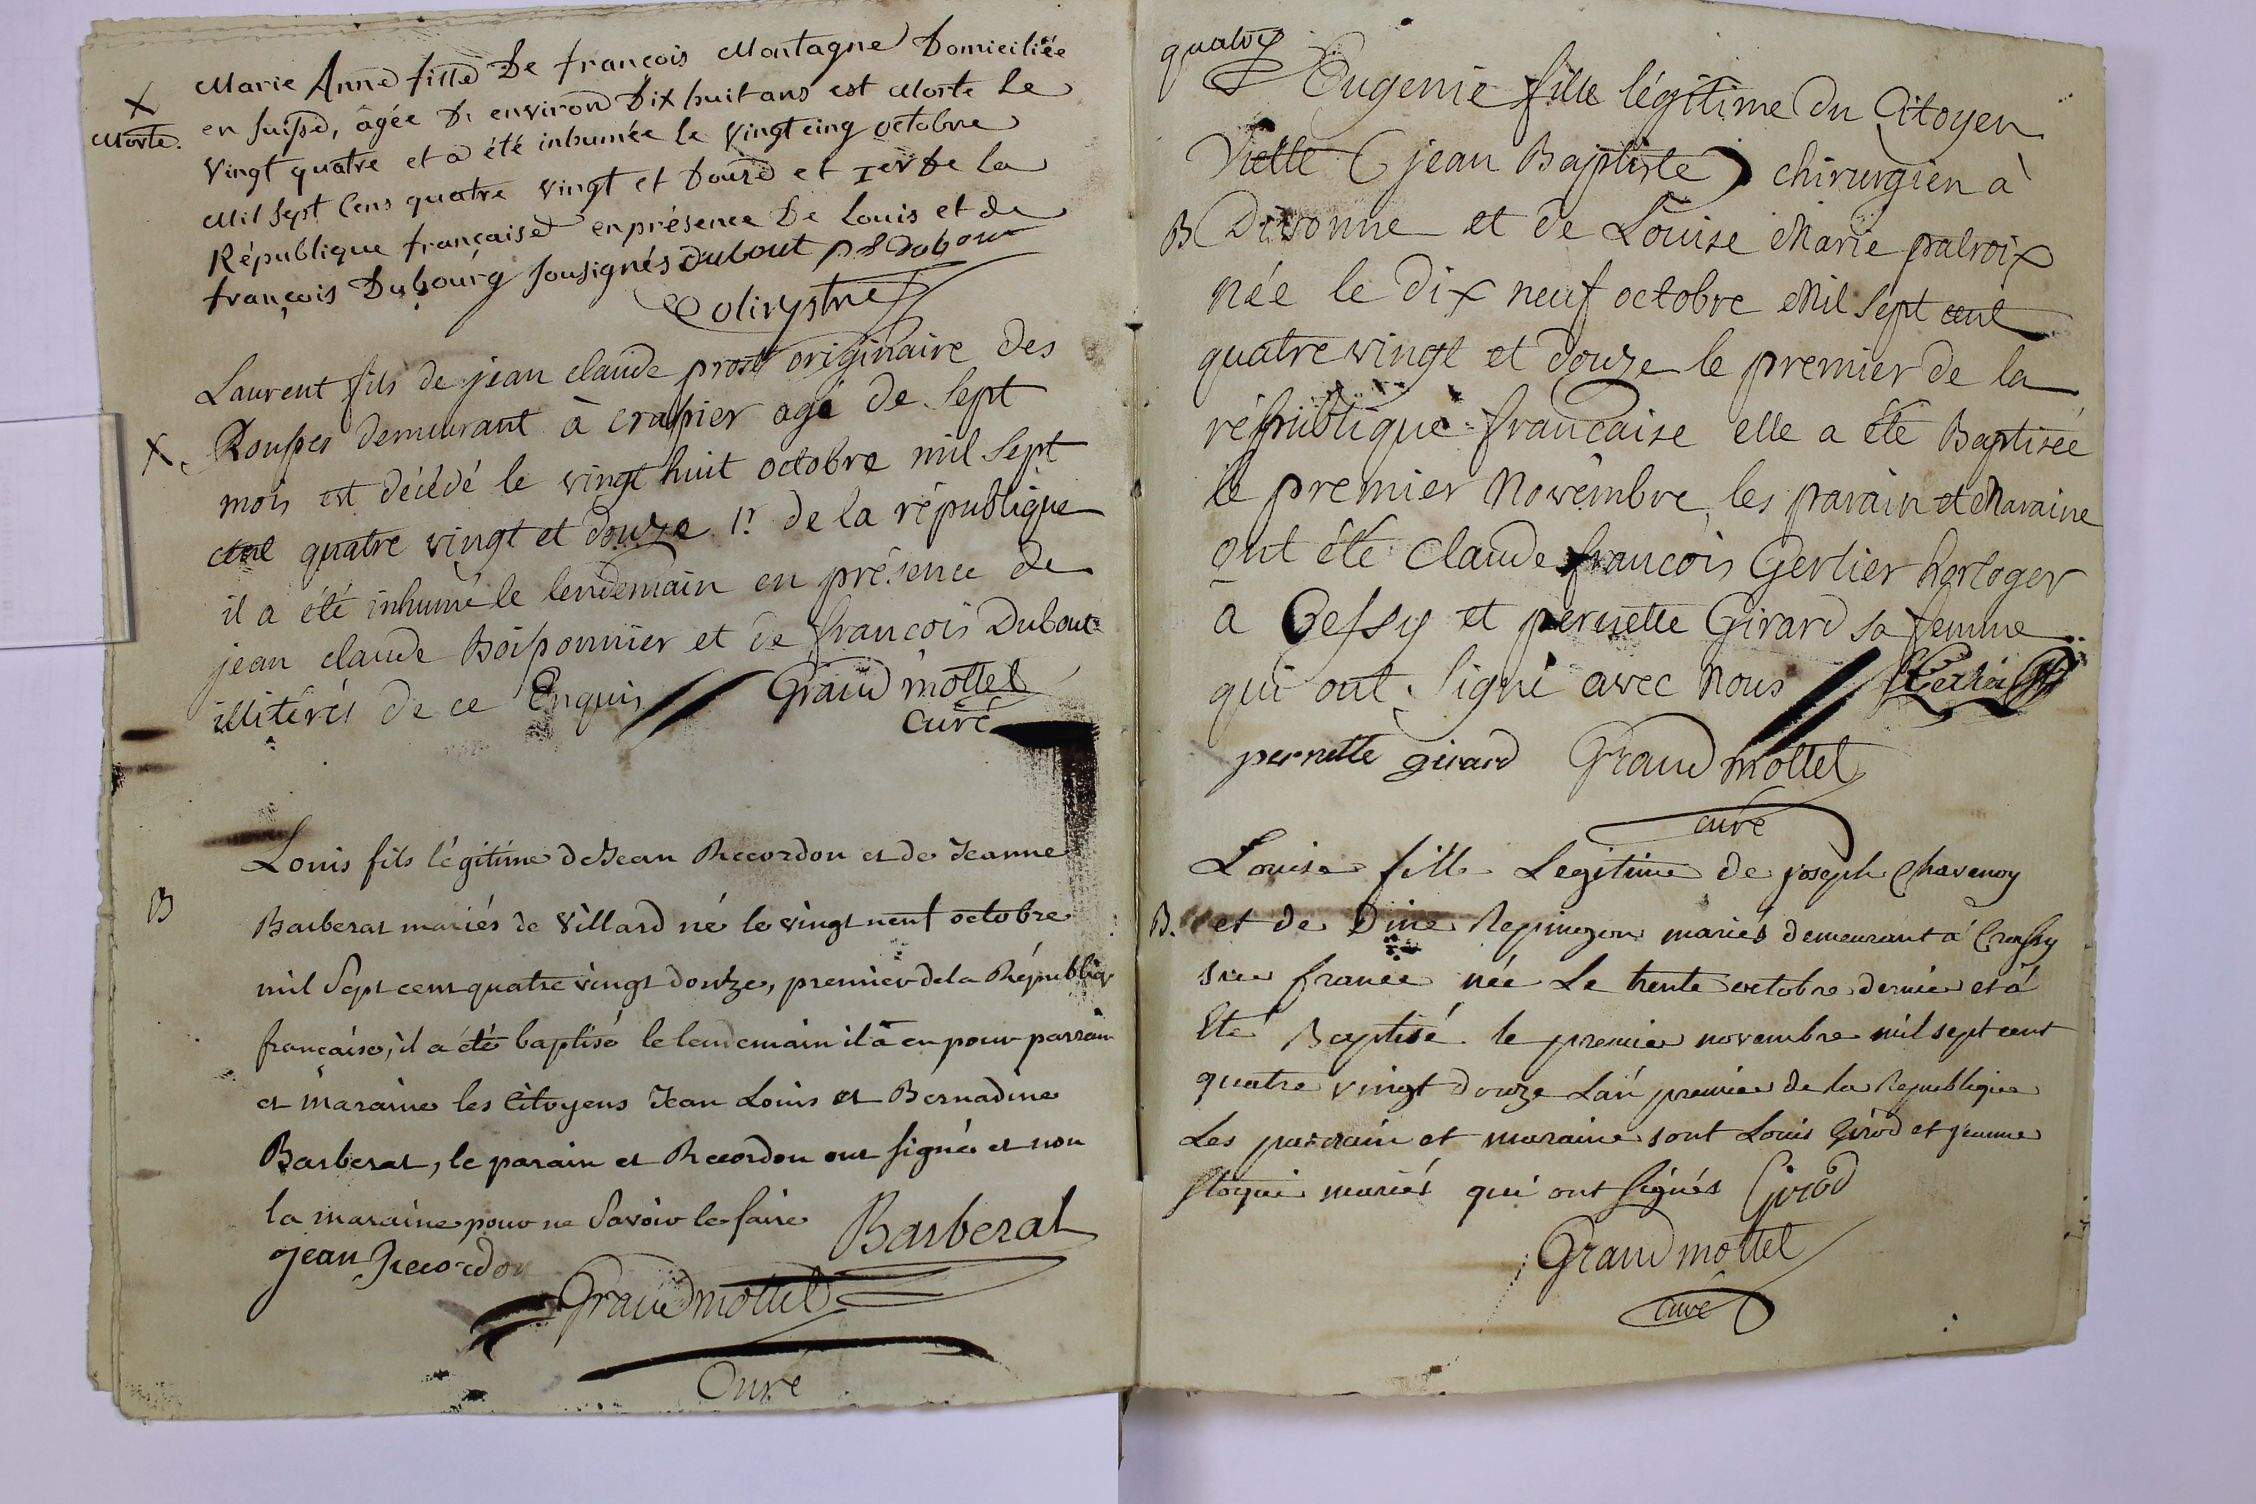 Marie Anne fille De françois Montagne Domiciliée
X
Morte.
en suisse, âgée D'environ Dix huit ans est Morte Le
vingt quatre et a été inhumée le vingt cinq octobre
Mil sept Cens quatre vingt et Douze et 1er De la
République française en présence De Louis et de
françois Dubourg sousignés Dubout
Laurent fils de jean claude prost originaire des
X Rousses demeurant à crassier agé de sept
mois est décédé le vingt huit octobre mil sept
cent quatre vingt et douze 1r de la république
il a été inhumé le lendemain en présence de
jean claude Boissonnier et de françois Dubout
illitérés de ce Enquis Grandmottet
curé
Louis fils légitime de Jean Recordon et de Jeanne
B
Barberat mariés de Villard né le vingt neuf octobre
mil Sept cent quatre vingt douze, premier de la Républiq
française, il a été baptisé le lendemain il a eu pour parrain
et maraine les Citoyens Jean Louis et Bernadine
Barberat, le parain et Recordon ont signés et non
la maraine pour ne Savoir le faire Barberat
jean Recordon
Grandmottet
Curé
quatre
Eugenie fille légitime du Citoyen
Vielle (jean Baptiste) chirurgien à
B Divonne et de Louise Marie palroix
née le dix neuf octobre Mil sept cent
quatre vingt et douze le premier de la
république francaise elle a été Baptisée
le premier Novembre, les parain et Maraine
ont été Claude francois Gerlier horloger
a Gessy et pernette Girard sa femme
qui ont signé avec nous
pernette girard Grandmottet
curé
Louise fille Legitime de joseph Chavenoy
B. et de Dine Repingon mariés demeurant á Crassy
sur france née Le trente octobre dernier et á
Eté Baptisé le premier novembre mil sept cent
quatre vingt douze L'an premier de la Republique
Les parrain et maraine sont Louis Girod et jeanne
mariés qui ont signés Girod
Grandmottet
curé